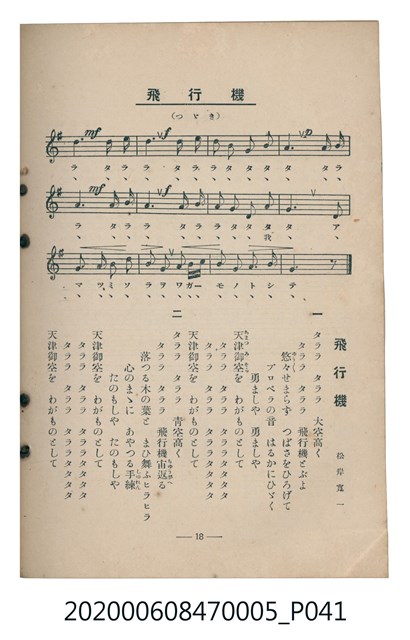 飛行機
(つゞき)
mf vf vp
ラ、タラ、ラ、タラ、ラタタタ タ タラ
mf vf
ラ タラ ラ タラタララタタタタ ア
我
マツミソラヲワガーモノトシテ
飛行機
松岸寛一
一
タララ タララ 大空高く
タララ タララ 飛行機とぶよ
悠々せまらず つばさをひろげて
プロペラの音 はるかにひゞく
勇ましや 勇ましや
天津御空を わがものとして
タララ タララ タララタタタタ
タララ タララ タララタタタタ
天津御空を わがものとして
二
タララ タララ 青空高く
タララ タララ 飛行機宙返る
落つる木の葉と まひ舞ふヒラヒラ
心のまゝに あやつる手練
たのもしや たのもしや
天津御空を わがものとして
タララ タララ タララタタタタ
タララ タララ タララタタタタ
天津御空を わがものとして
18
202000608470005_P041